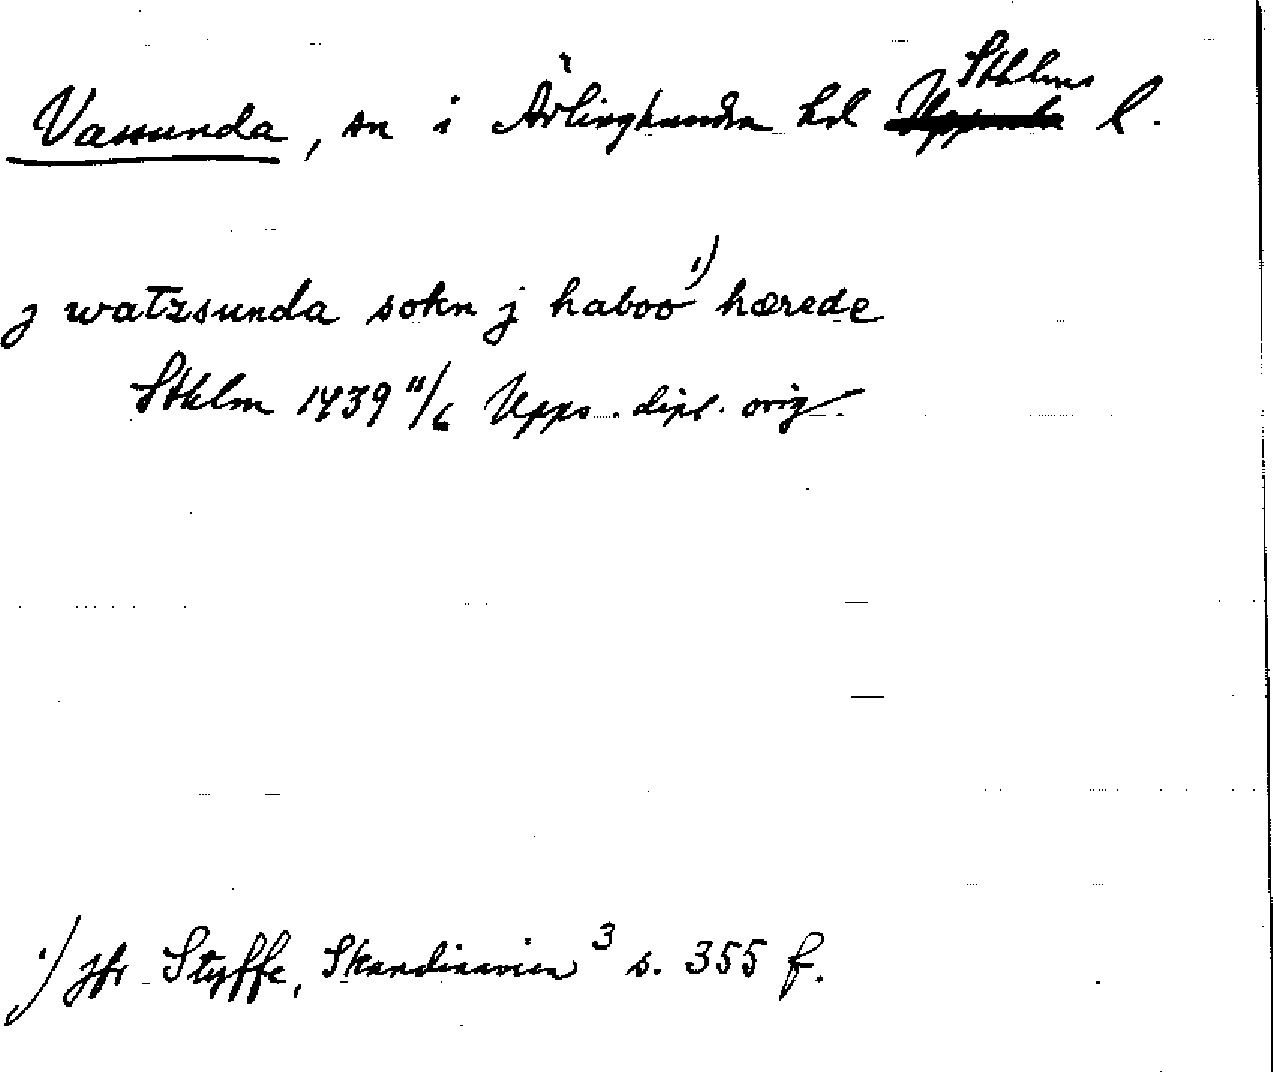 Vassunda, sn i Ärlinghundra hd Sthlms l.
j watzsunda sokn j haboo¹⁾ hærede
Sthlm 1439 11/6 Upps. dipl. orig.
¹⁾ jfr Styffe, Skandinavien³ s. 355 f.